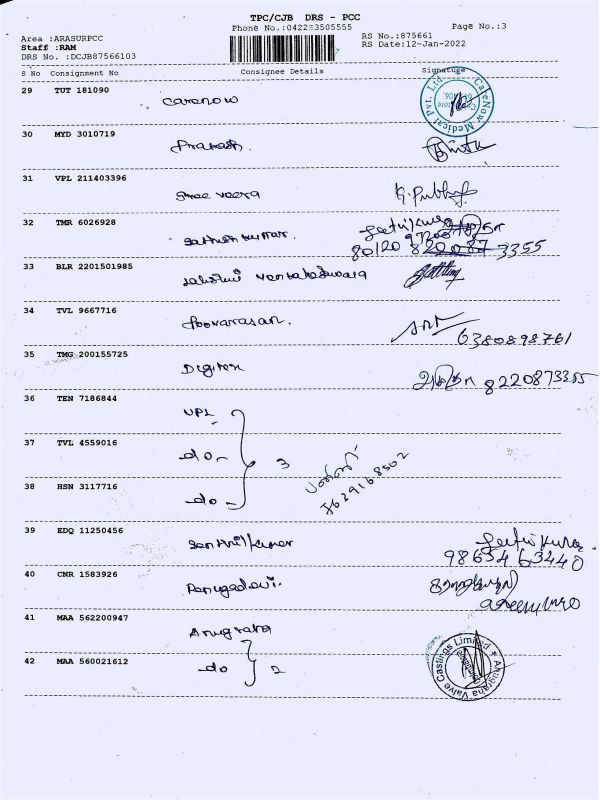 TPC/CJB DRS - PCC
Phone No.:0422=3505555
Page No.:3
Area :ARASURPCC
RS No.:875661
Staff :RAM
RS Date:12-Jan-2022
DRS No. :DCJB87566103
S No Consignment No Consignee Details Signature
29 TUT 181090 Carenow
CareNow Medical Pvt. Ltd.
30 MYD 3010719 Prakash.
31 VPL 211403396 Sree veera
32 TMR 6026928 Sathishkumar.
3355
33 BLR 2201501985
34 TVL 9667716 Poovarasan.
6380898761
35 TMG 200155725 Digitex
8220873355
36 TEN 7186844 UPL
37 TVL 4559016 do - 3
8639168502
38 HSN 3117716 do -
39 EDQ 11250456 Senthilkumar
98654 63440
40 CNR 1583926
41 MAA 562200947 Anugraha
42 MAA 560021612 do 2
Anugraha Valve Castings Limited